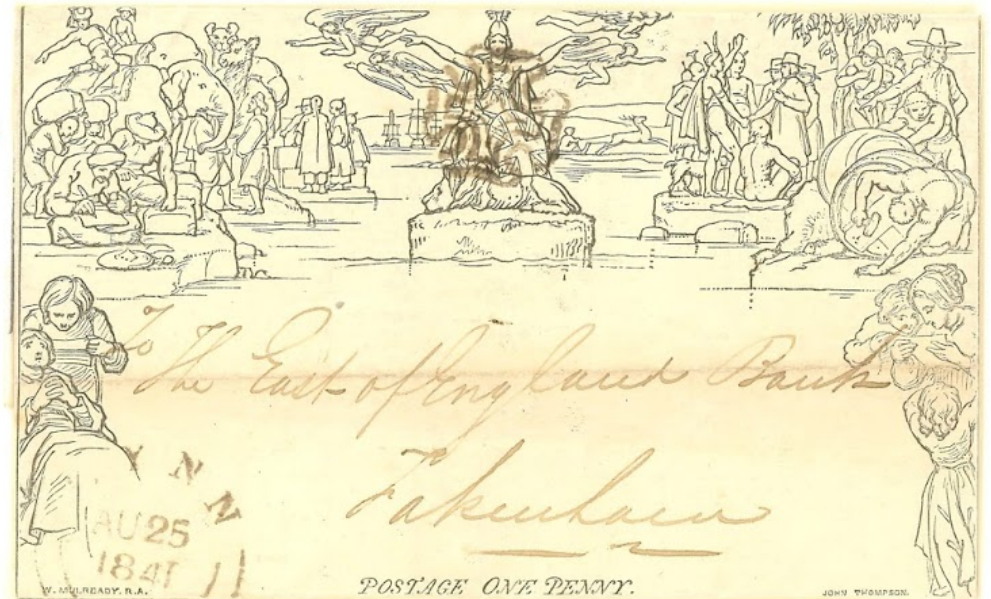 To
The East of England Bank
Fakenham
N
2
AU 25
1841
W. MULREADY. R.A.
POSTAGE ONE PENNY.
JOHN THOMPSON.